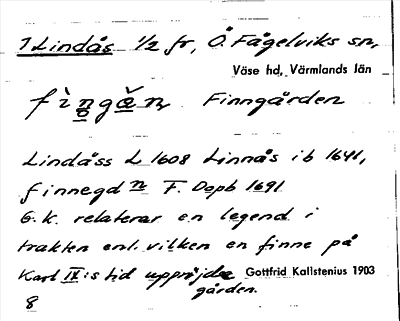 1 Lindås 1/2 fr, Ö. Fågelviks sn,
Väse hd, Värmlands län
fìngǎn Finngården
Lindåss L 1608 Linnås ib 1641,
finnegd n F. Dopb 1691
G.k. relaterar en legend i
trakten enl. vilken en finne på
Karl IX:s tid uppröjde
gården.
Gottfrid Kallstenius 1903
8